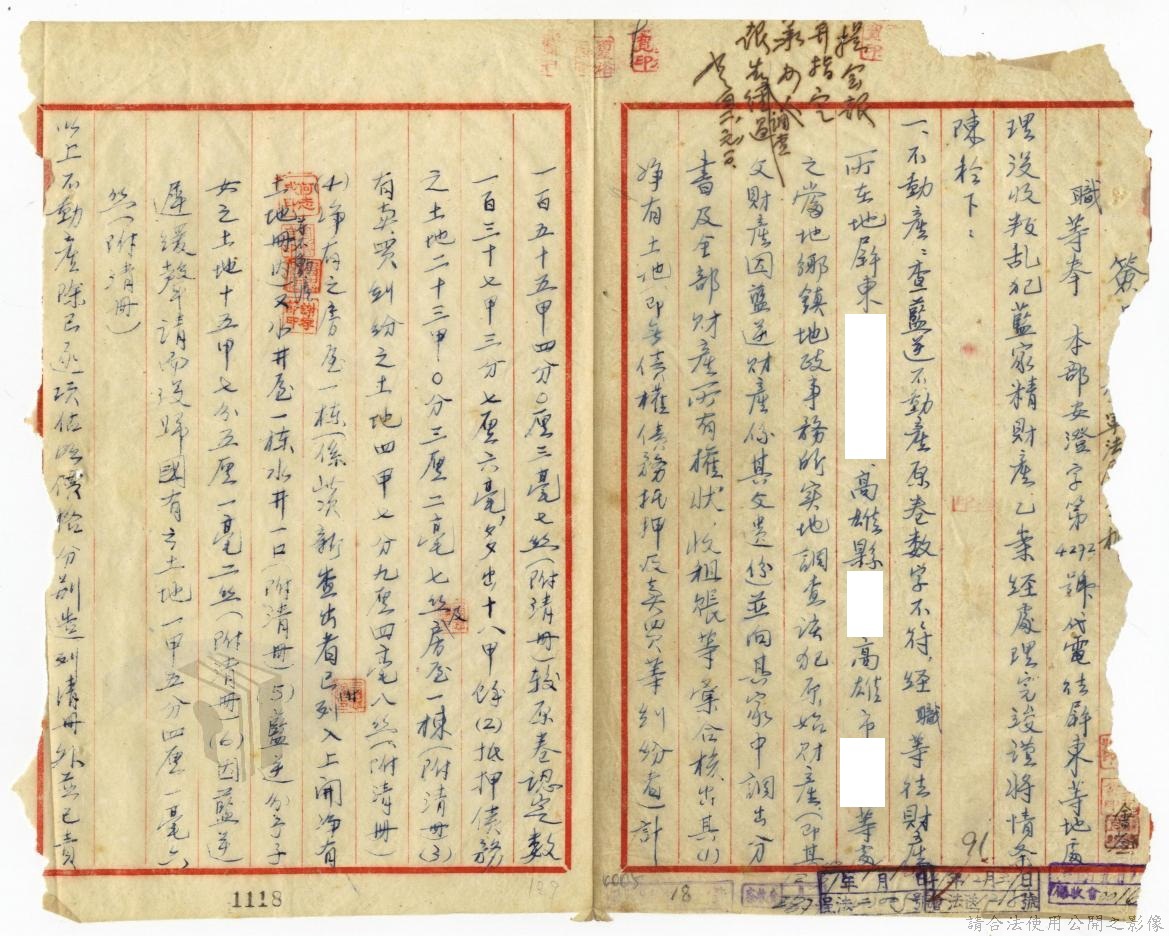 簽
職等奉 本部安澄字第4292號代電往屏東等地處
理沒收叛乱犯藍家精財產乙案經處理完竣謹將情条
陳於下：
一、不動產：查藍逆不動產原卷数字不符，經職等往財產
所在地屏東 高雄縣 高雄市 等處
之當地鄉鎮地政事務所实地調查該犯原始財產（即其
父財產因藍逆財產係其父遺份並向其家中調出分
書及全部財產所有權狀，收租賬等彙合核出其(1)
净有土地（即無債權債務抵押及買賣等糾紛者）計
一百五十五甲四分〇厘三毫七丝（附清冊）較原卷認定數
一百三十七甲三分七厘六毫，多出十八甲餘(2)抵押債務
之土地二十三甲〇分三厘二毫七丝及房屋一棟（附清冊）(3)
有買賣糾纷之土地四甲七分九厘四毫八丝（附清冊）
(4)净有之房屋一栋（係此次新查出者已列入上開净有
土地冊内）又水井屋一栋水井一口（附清冊）(5)藍逆分予子
女之土地十五甲七分五厘一毫二丝（附清冊）(6)因藍逆
遲緩聲請而沒歸國有之土地一甲五分四厘一毫六
丝（附清冊）
以上不動產除已逐項估照價格分别造列清冊外並已責
提会報
并指定
承办人
報告調查經過
91
18
1118
189
請合法使用公開之影像